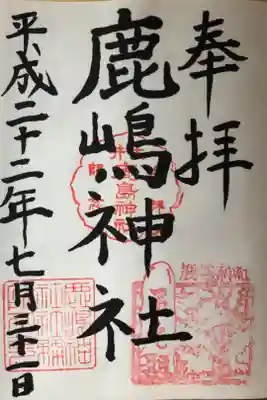 奉拝
鹿嶋神社
平成二十二年七月三十一日